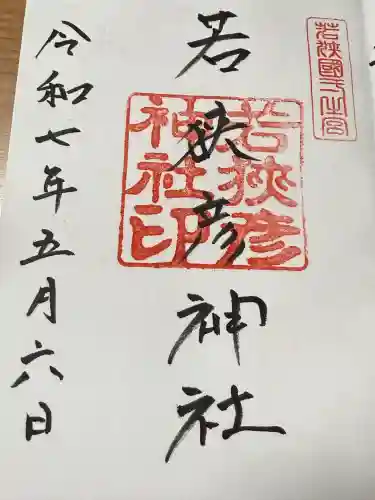 若狭國一之宮
若狹彦神社
若狹彦
神社印
令和七年五月六日